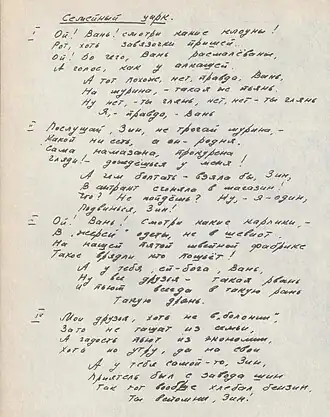 Семейный цирк.
I Ой! Вань! смотри какие клоуны!
Рот, хоть завязочки пришей.
Ой! До чего, Вань размалёваны,
А голос, как у алкашей.
А тот похож, нет, правда, Вань,
На шурина, - такая ж пьянь.
Ну нет, - ты глянь, нет, нет - ты глянь
Я, - правда, - Вань
II Послушай, Зин, не трогай шурина, -
Какой ни есть, а он - родня.
Сама намазана, прокурена
Гляди! - дождёшься у меня!
А чем болтать - взяла бы, Зин,
В антракт сгоняла в магазин!
Что? Не пойдёшь? Ну, - я - один,
Подвинься, Зин!
III Ой! Вань! Смотри какие карлики, -
В "жерси" одеты, не в шевиот
На нашей пятой швейной фабрике
Такое врядли кто пошьёт!
А у тебя, ей-бога, Вань,
Ну все друзья - такая рвань
И пьют всегда в такую рань
Такую дрянь.
IV "Мои друзья, хоть не в "болоньи",
Зато не тащат из семьи,
А гадость пьют из экономии,
Хотя по утру, да на свои
А у тебя самой-то, Зин,
Приятель был с завода шин
Так тот вообще хлебал бензин,
Ты вспомни, Зин!